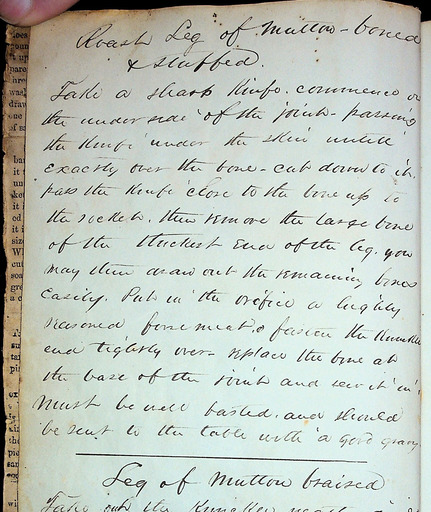 Roast Leg of Mutton - boned
& stuffed.
Take a sharp Knife. commence on
the under side of the joint - passing
the Knife under the skin untill
exactly over the bone - cut down to it.
pass the Knife close to the bone up to
the socket. then remove the large bone
of the thickest End of the leg. you
may then draw out the remaining bones
Easily. Put in the orifice a highly
seasoned forcemeat, & fasten the Knuckle
end tightly over - replace the bone at
the base of the joint and sew it in.
Must be well basted. and should
be sent to the table with a good gravy
Leg of Mutton braised
Take out the Knuckle